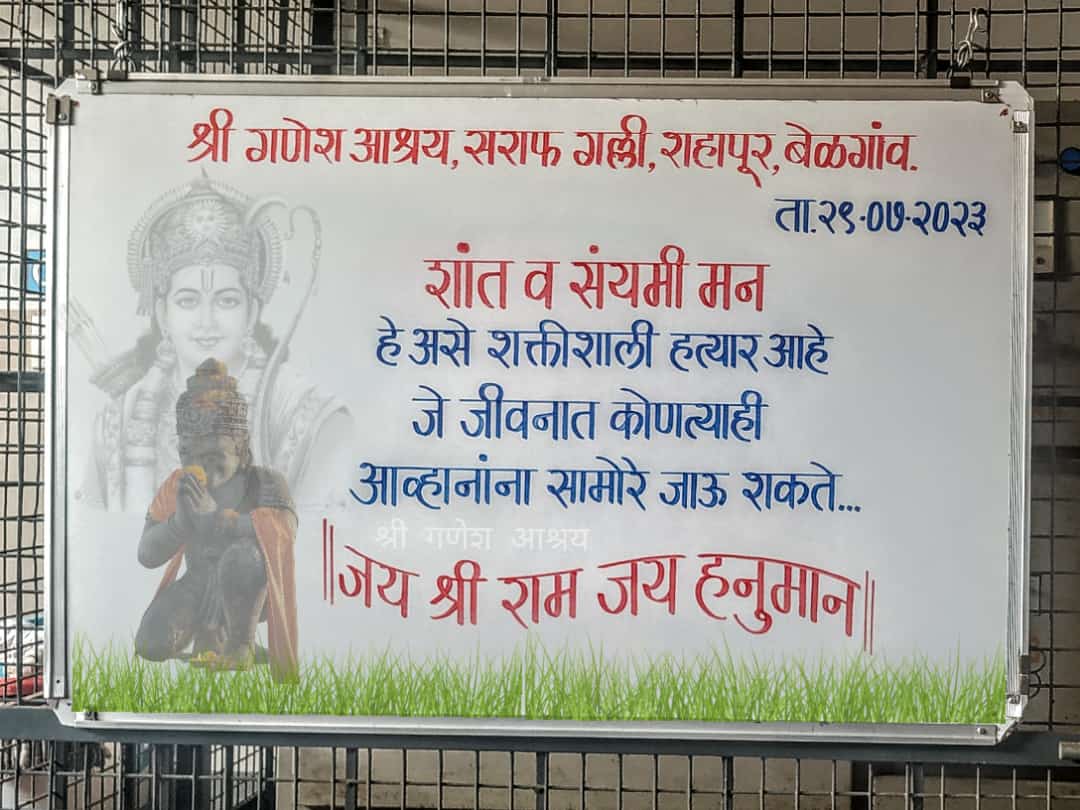 श्री गणेश आश्रय, सराफ गल्ली, शहापूर, बेळगांव.
ता.२९-०७-२०२३
शांत व संयमी मन
हे असे शक्तीशाली हत्यार आहे
जे जीवनात कोणत्याही
आव्हानांना सामोरे जाऊ शकते...
श्री गणेश आश्रय
||जय श्री राम जय हनुमान||